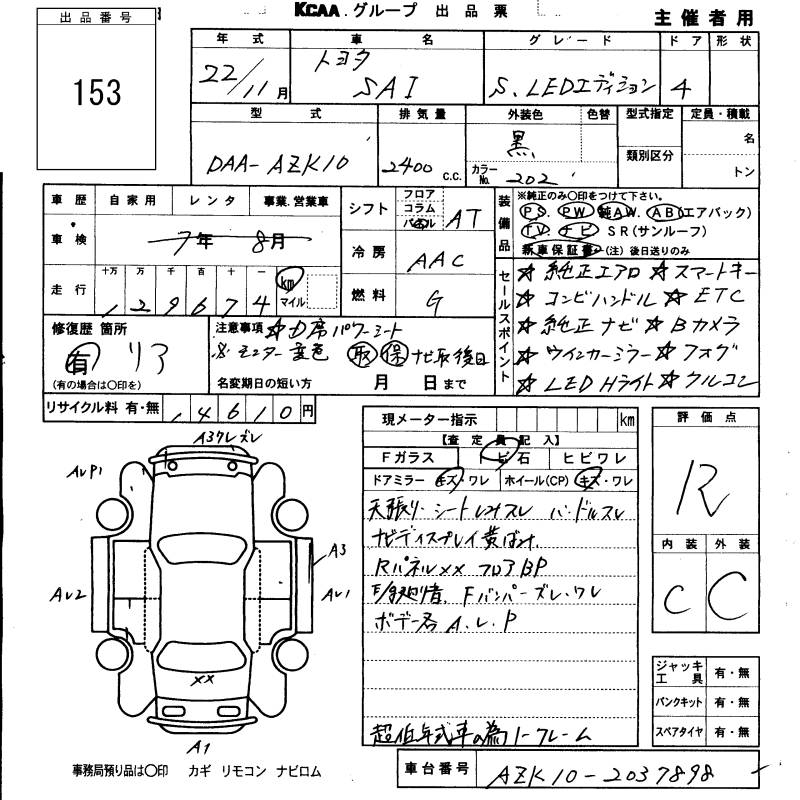 KCAA.グループ 出品票
主催者用
出品番号
153
年式 車名 グレード ドア 形状
22/11月 トヨタ SAI S. LEDエディション 4
型式 排気量 外装色 色替 型式指定 定員・積載
DAA-AZK10 2400 c.c. 黒 カラーNo. 202 類別区分 名 トン
車歴 自家用 レンタ 事業.営業車
車検 7年 8月
走行 十万 万 千 百 十 一
129674 km マイル
シフト フロア コラム パネル AT
冷房 AAC
燃料 G
装備品
※純正のみ〇印をつけて下さい。
PS. PW 純AW. AB (エアバック)
TV. ナビ SR(サンルーフ)
新車保証書 (注)後日送りのみ
セールスポイント
☆純正エアロ ☆スマートキー
☆コンビハンドル ☆ETC
☆純正ナビ ☆Bカメラ
☆ウインカーミラー ☆フォグ
☆LED Hライト ☆クルコン
修復歴 箇所
有 リア
(有の場合は〇印を)
注意事項 ☆D席パワーシート
※モニター変色 取 保 ナビ取後日
名変期日の短い方 月 日まで
リサイクル料 有・無 14610円
現メーター指示 km
【査定員記入】
Fガラス トビ石 ヒビワレ
ドアミラー キズ・ワレ ホイール(CP) キズ・ワレ
天張り・シートシミスレ ハンドルスレ
ナビディスプレイ黄ばみ
Rパネル×× フロアBP
Fバンパーズレ・ワレ
ボデー各A.U.P
超低年式車の為ノークレーム
評価点
R
内装 外装
C C
ジャッキ工具 有・無
パンクキット 有・無
スペアタイヤ 有・無
A3クレズレ
AUP1
A3
AU2 AU1
××
A1
事務局預り品は〇印 カギ リモコン ナビロム
車台番号 AZK10-2037898